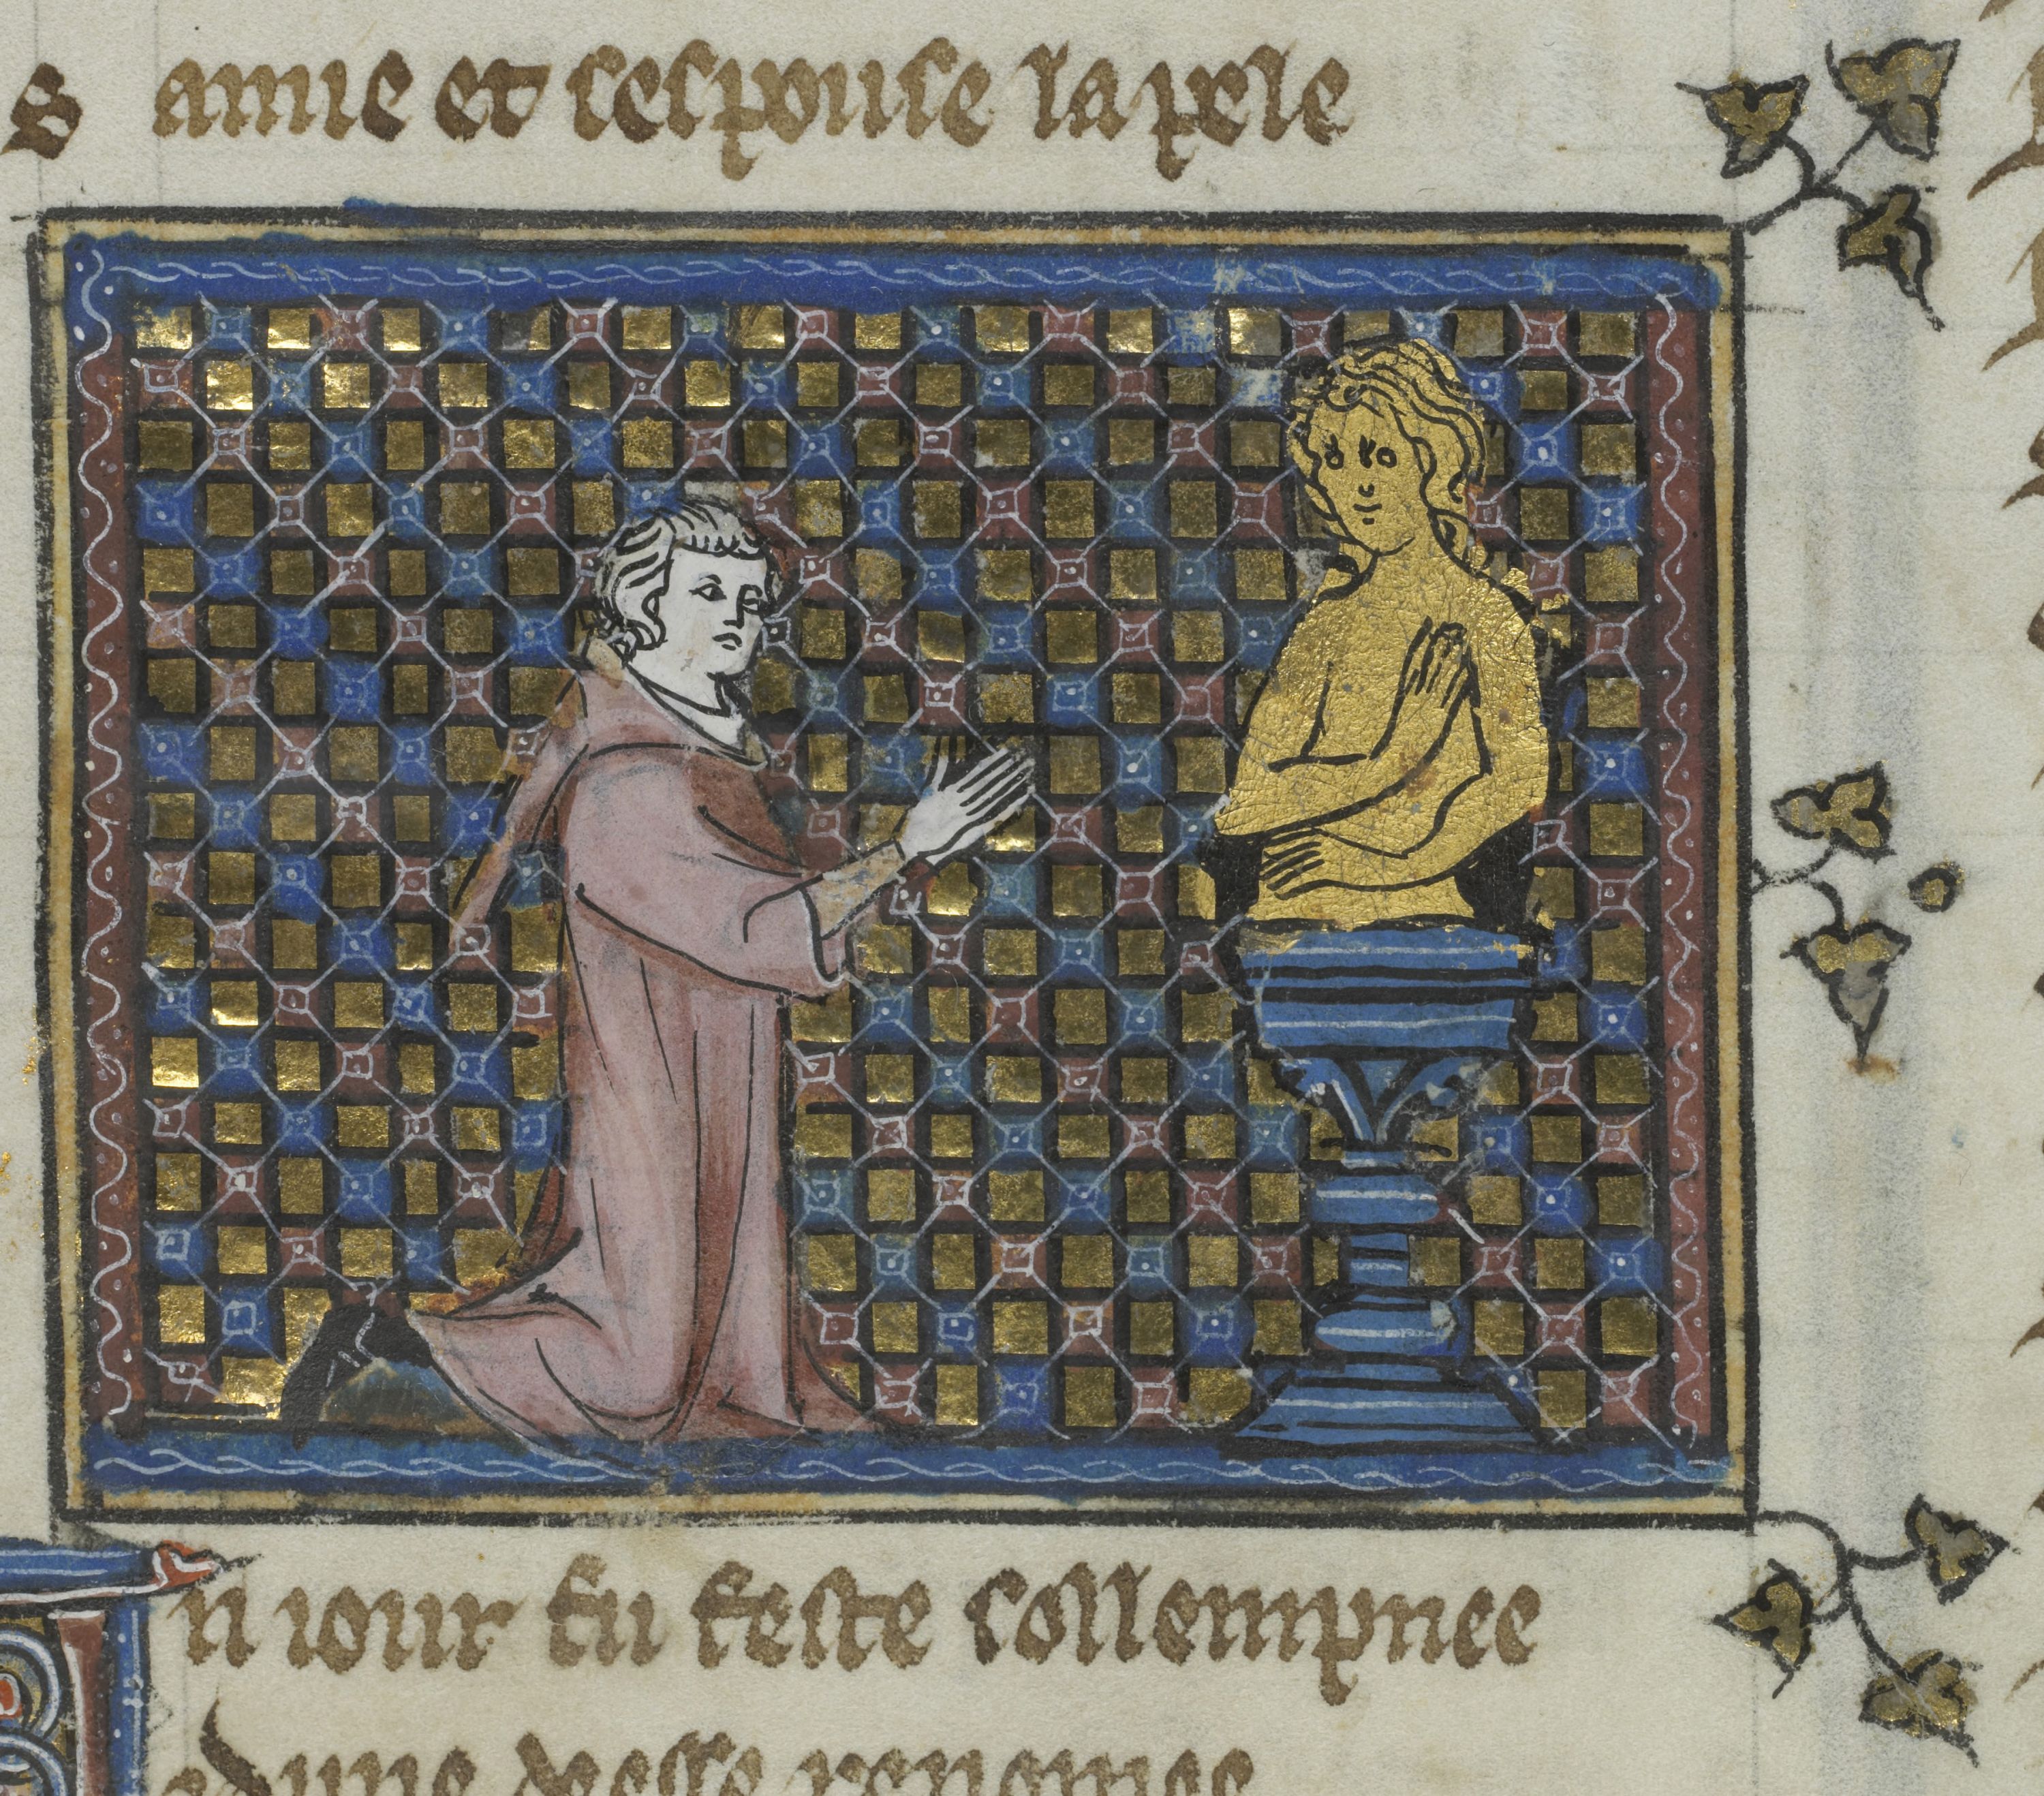 s amie et sespouse lapele
n iour fu feste sollempnee
dune deesse renomee